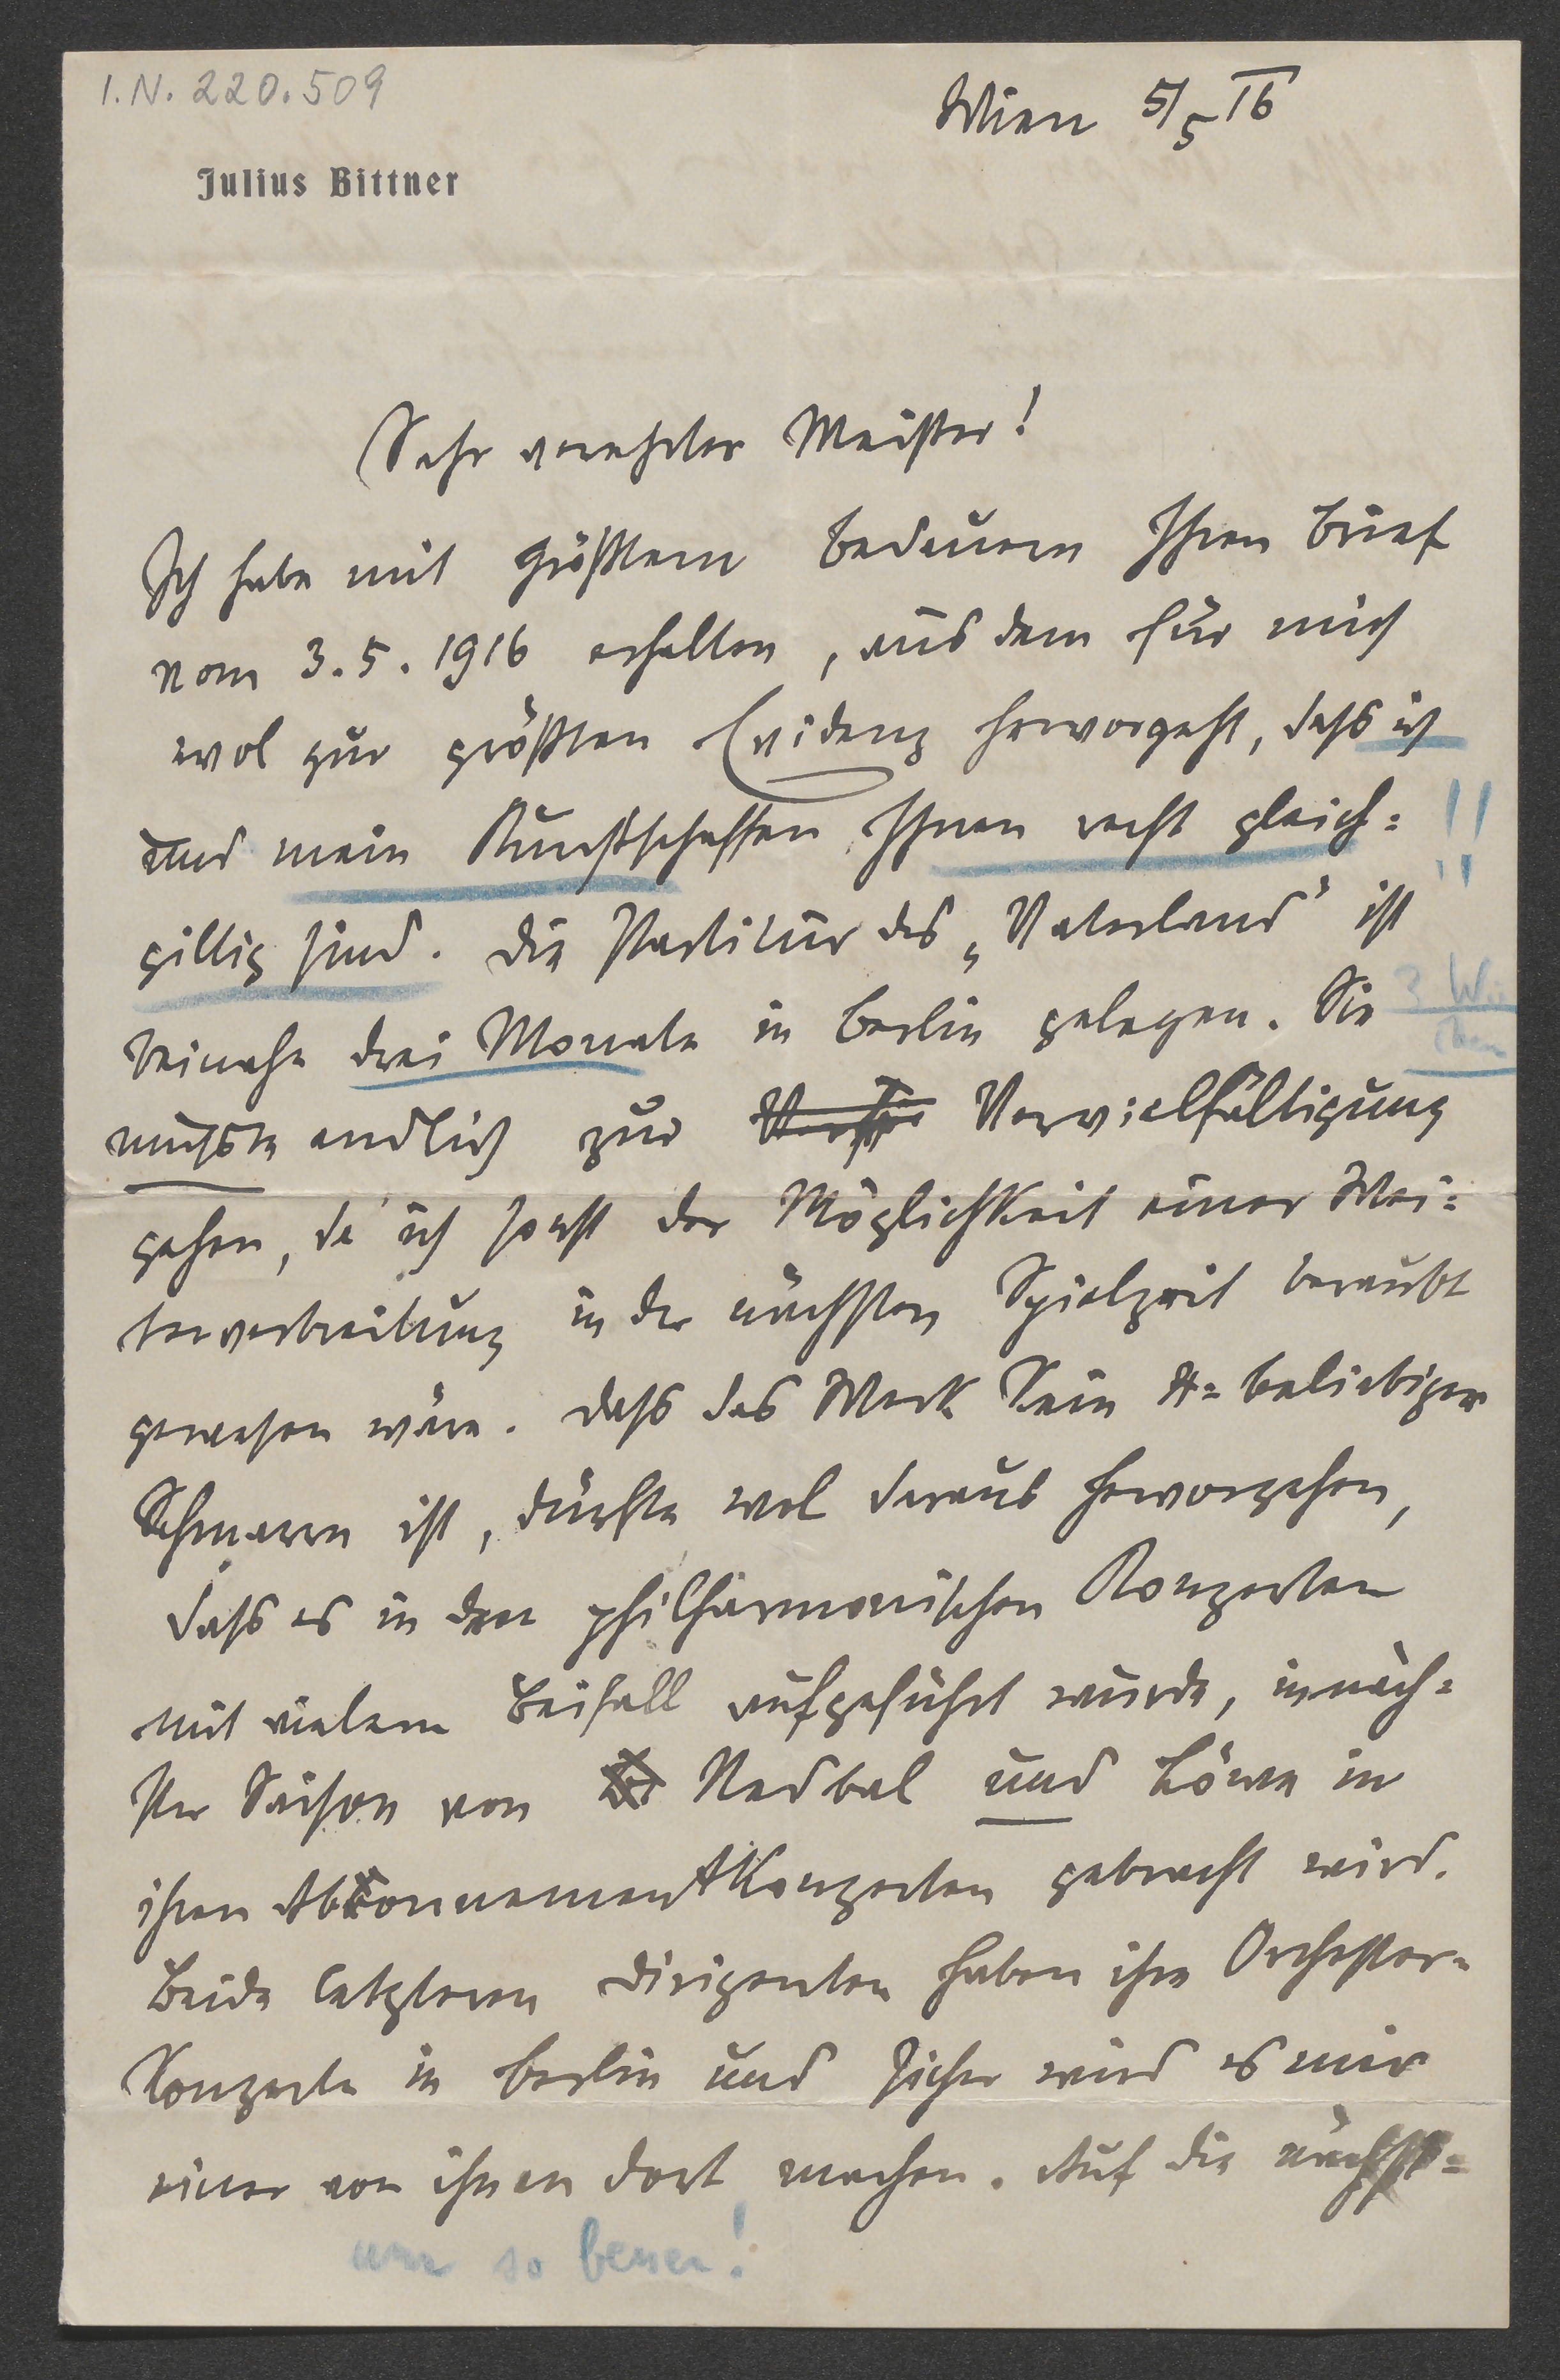 I.N. 220.509
Wien 5/5 16
Julius Bittner
Sehr verehrter Meister!
Ich habe mit größtem Bedauern Ihren Brief
vom 3.5.1916 erhalten, aus dem für mich
wol zur größten Evidenz hervorgeht, dass ich
und mein Kunstschaffen Ihnen recht gleich= !!
giltig sind. Die Partitur des „Vaterland" ist
beinahe drei Monate in Berlin gelegen. Sie
3 Wo
chen
musste endlich zur Vervielfältigung
gehen, da ich sonst der Möglichkeit einer Wei=
terverbreitung in der nächsten Spielzeit beraubt
gewesen wäre. Dass das Werk kein X=beliebiger
Schmarrn ist, dürfte wol daraus hervorgehen,
dass es in den philharmonischen Konzerten
mit vielem Beifall aufgeführt wurde, in näch=
ster Saison von Nedbal und Löwe in
ihren Abonnementkonzerten gebracht wird.
Beide letzteren Dirigenten haben ihre Orchester=
konzerte in Berlin und sicher wird es mir
einer von ihnen dort machen. Auf die nächst=
um so besser!